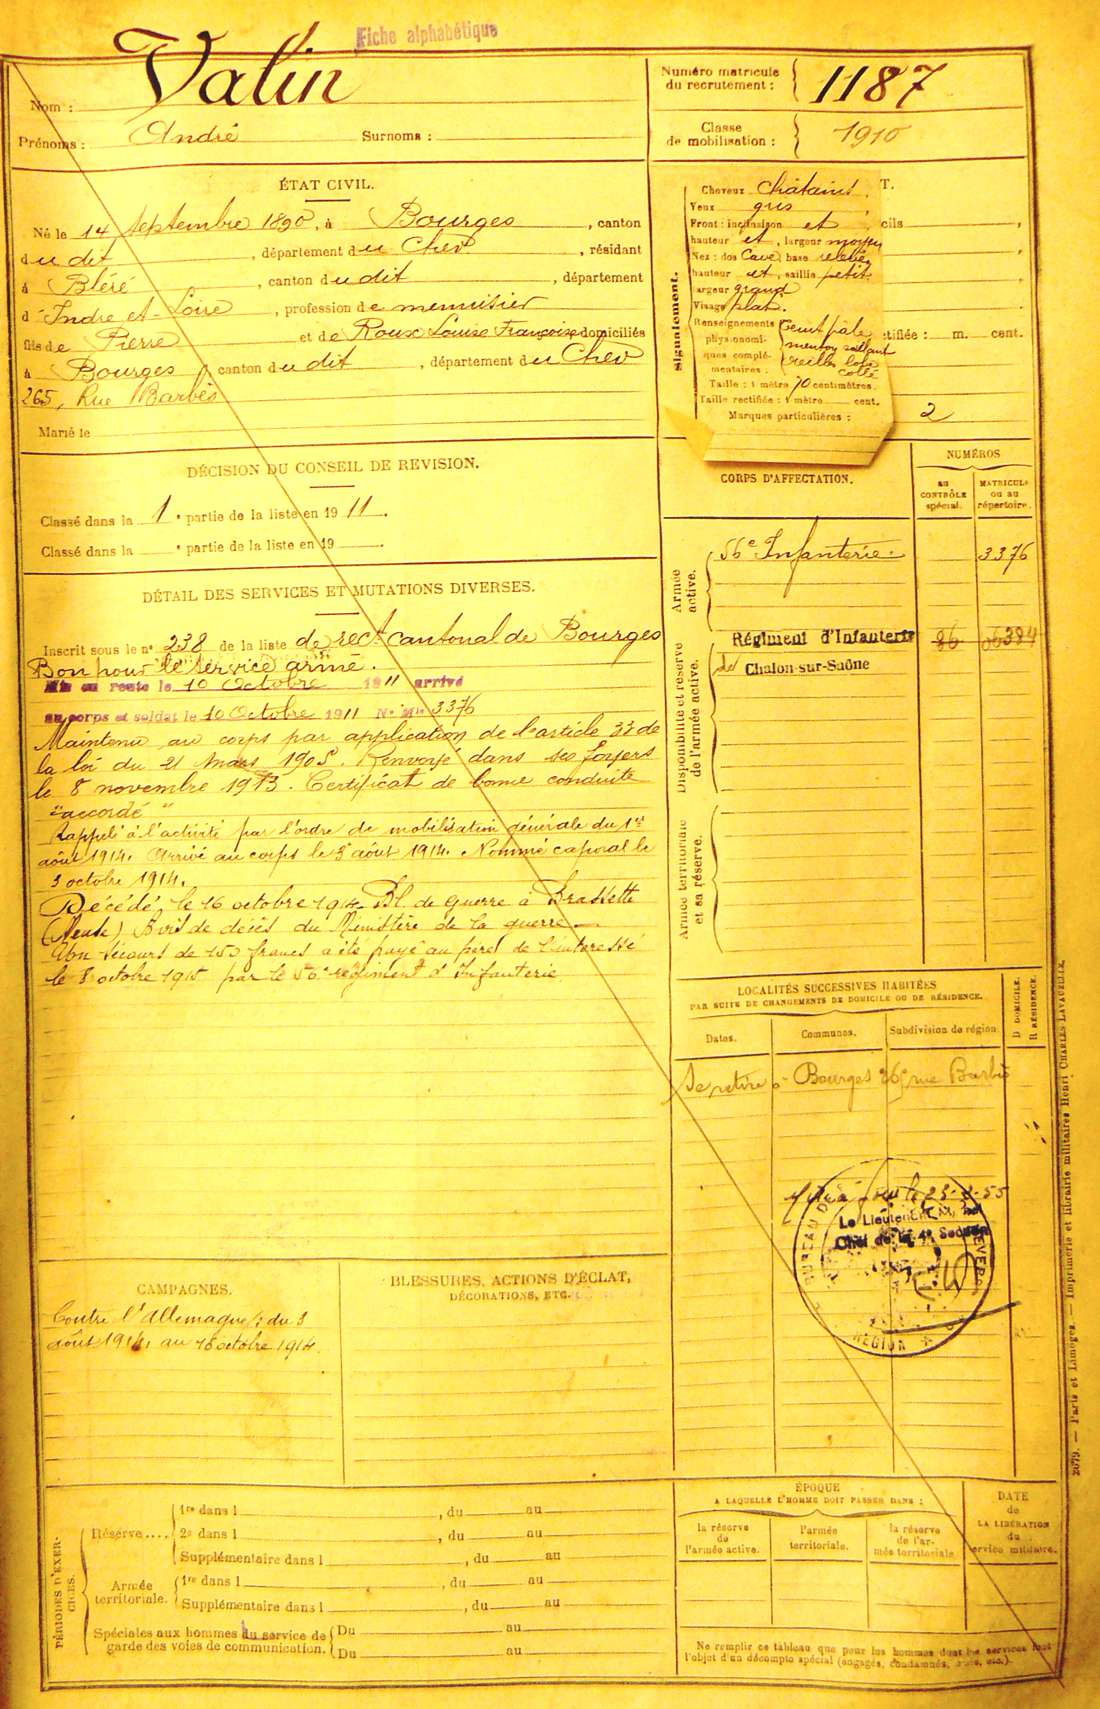 Fiche alphabétique
Nom : Valin
Prénoms : André Surnoms :
Numéro matricule
du recrutement : 1187
Classe
de mobilisation : 1910
ÉTAT CIVIL.
Né le 14 Septembre 1890, à Bourges, canton
dudit, département du Cher, résidant
à Bléré, canton dudit, département
d'Indre et Loire, profession de menuisier
fils de Pierre et de Roux Louise Françoise domiciliés
à Bourges, canton dudit, département du Cher
265, Rue Barbès
Marié le
Signalement.
Cheveux châtains T.
Yeux gris
Front : inclinaison et cils
hauteur et, largeur moyen
Nez : dos Cave, base relevée
hauteur et, saillie petit
largeur grand
Visage plat.
Renseignements teint pâle
physionomi- menton saillant
ques complé- oreilles lobe
mentaires : collé
ctifiée : m. cent.
Taille : 1 mètre 70 centimètres.
Taille rectifiée : 1 mètre cent.
Marques particulières :
2
DÉCISION DU CONSEIL DE REVISION.
Classé dans la 1e partie de la liste en 1911.
Classé dans la e partie de la liste en 19
DÉTAIL DES SERVICES ET MUTATIONS DIVERSES.
Inscrit sous le n° 238 de la liste de rect cantonal de Bourges
Bon pour le service armé.
Mis en route le 10 Octobre 1911 arrivé
au corps et soldat le 10 Octobre 1911 N° Mle 3376
Maintenu au corps par application de l'article 33 de
la loi du 21 mars 1905. Renvoyé dans ses foyers
le 8 novembre 1913. Certificat de bonne conduite
"accordé"
Rappelé à l'activité par l'ordre de mobilisation générale du 1er
août 1914. Arrivé au corps le 3 août 1914. Nommé caporal le
3 octobre 1914.
Décédé le 16 octobre 1914 Bl. de Guerre à
(Meuse) Avis de décès du Ministère de la guerre.
Un secours de 150 francs a été payé au père de l'intéressé
le 8 octobre 1915 par le 56e régiment d'Infanterie
CORPS D'AFFECTATION.
NUMÉROS
au
CONTRÔLE
spécial.
MATRICULE
ou au
répertoire.
Armée
active.
56e Infanterie. 3376
Disponibilité et réserve
de l'armée active.
Régiment d'Infanterie
de Chalon-sur-Saône
Armée territoriale
et sa réserve.
LOCALITÉS SUCCESSIVES HABITÉES
PAR SUITE DE CHANGEMENTS DE DOMICILE OU DE RÉSIDENCE.
Dates.
Communes.
Subdivision de région
D DOMICILE.
R RÉSIDENCE.
Se retire à Bourges 265 rue Barbès
Le Lieutenant
Chef de la 4e Section
BUREAU DE
NEVERS
RÉGION
CAMPAGNES.
Contre l'Allemagne : du 3
août 1914, au 16 octobre 1914.
BLESSURES, ACTIONS D'ÉCLAT,
DÉCORATIONS, ETC.
PÉRIODES D'EXER-
CICES.
Réserve....
1re dans l , du au
2e dans l , du au
Supplémentaire dans l , du au
Armée
territoriale.
1re dans l , du au
Supplémentaire dans l , du au
Spéciales aux hommes du service de
garde des voies de communication.
Du au
Du au
ÉPOQUE
A LAQUELLE L'HOMME DOIT PASSER DANS :
la réserve
de
l'armée active.
l'armée
territoriale.
la réserve
de l'ar-
mée territoriale.
DATE
de
LA LIBÉRATION
du
service militaire.
Ne remplir ce tableau que pour les hommes dont les services font
l'objet d'un décompte spécial (engagés, condamnés, etc.).
2079. — Paris et Limoges. — Imprimerie et librairie militaires Henri CHARLES-LAVAUZELLE.